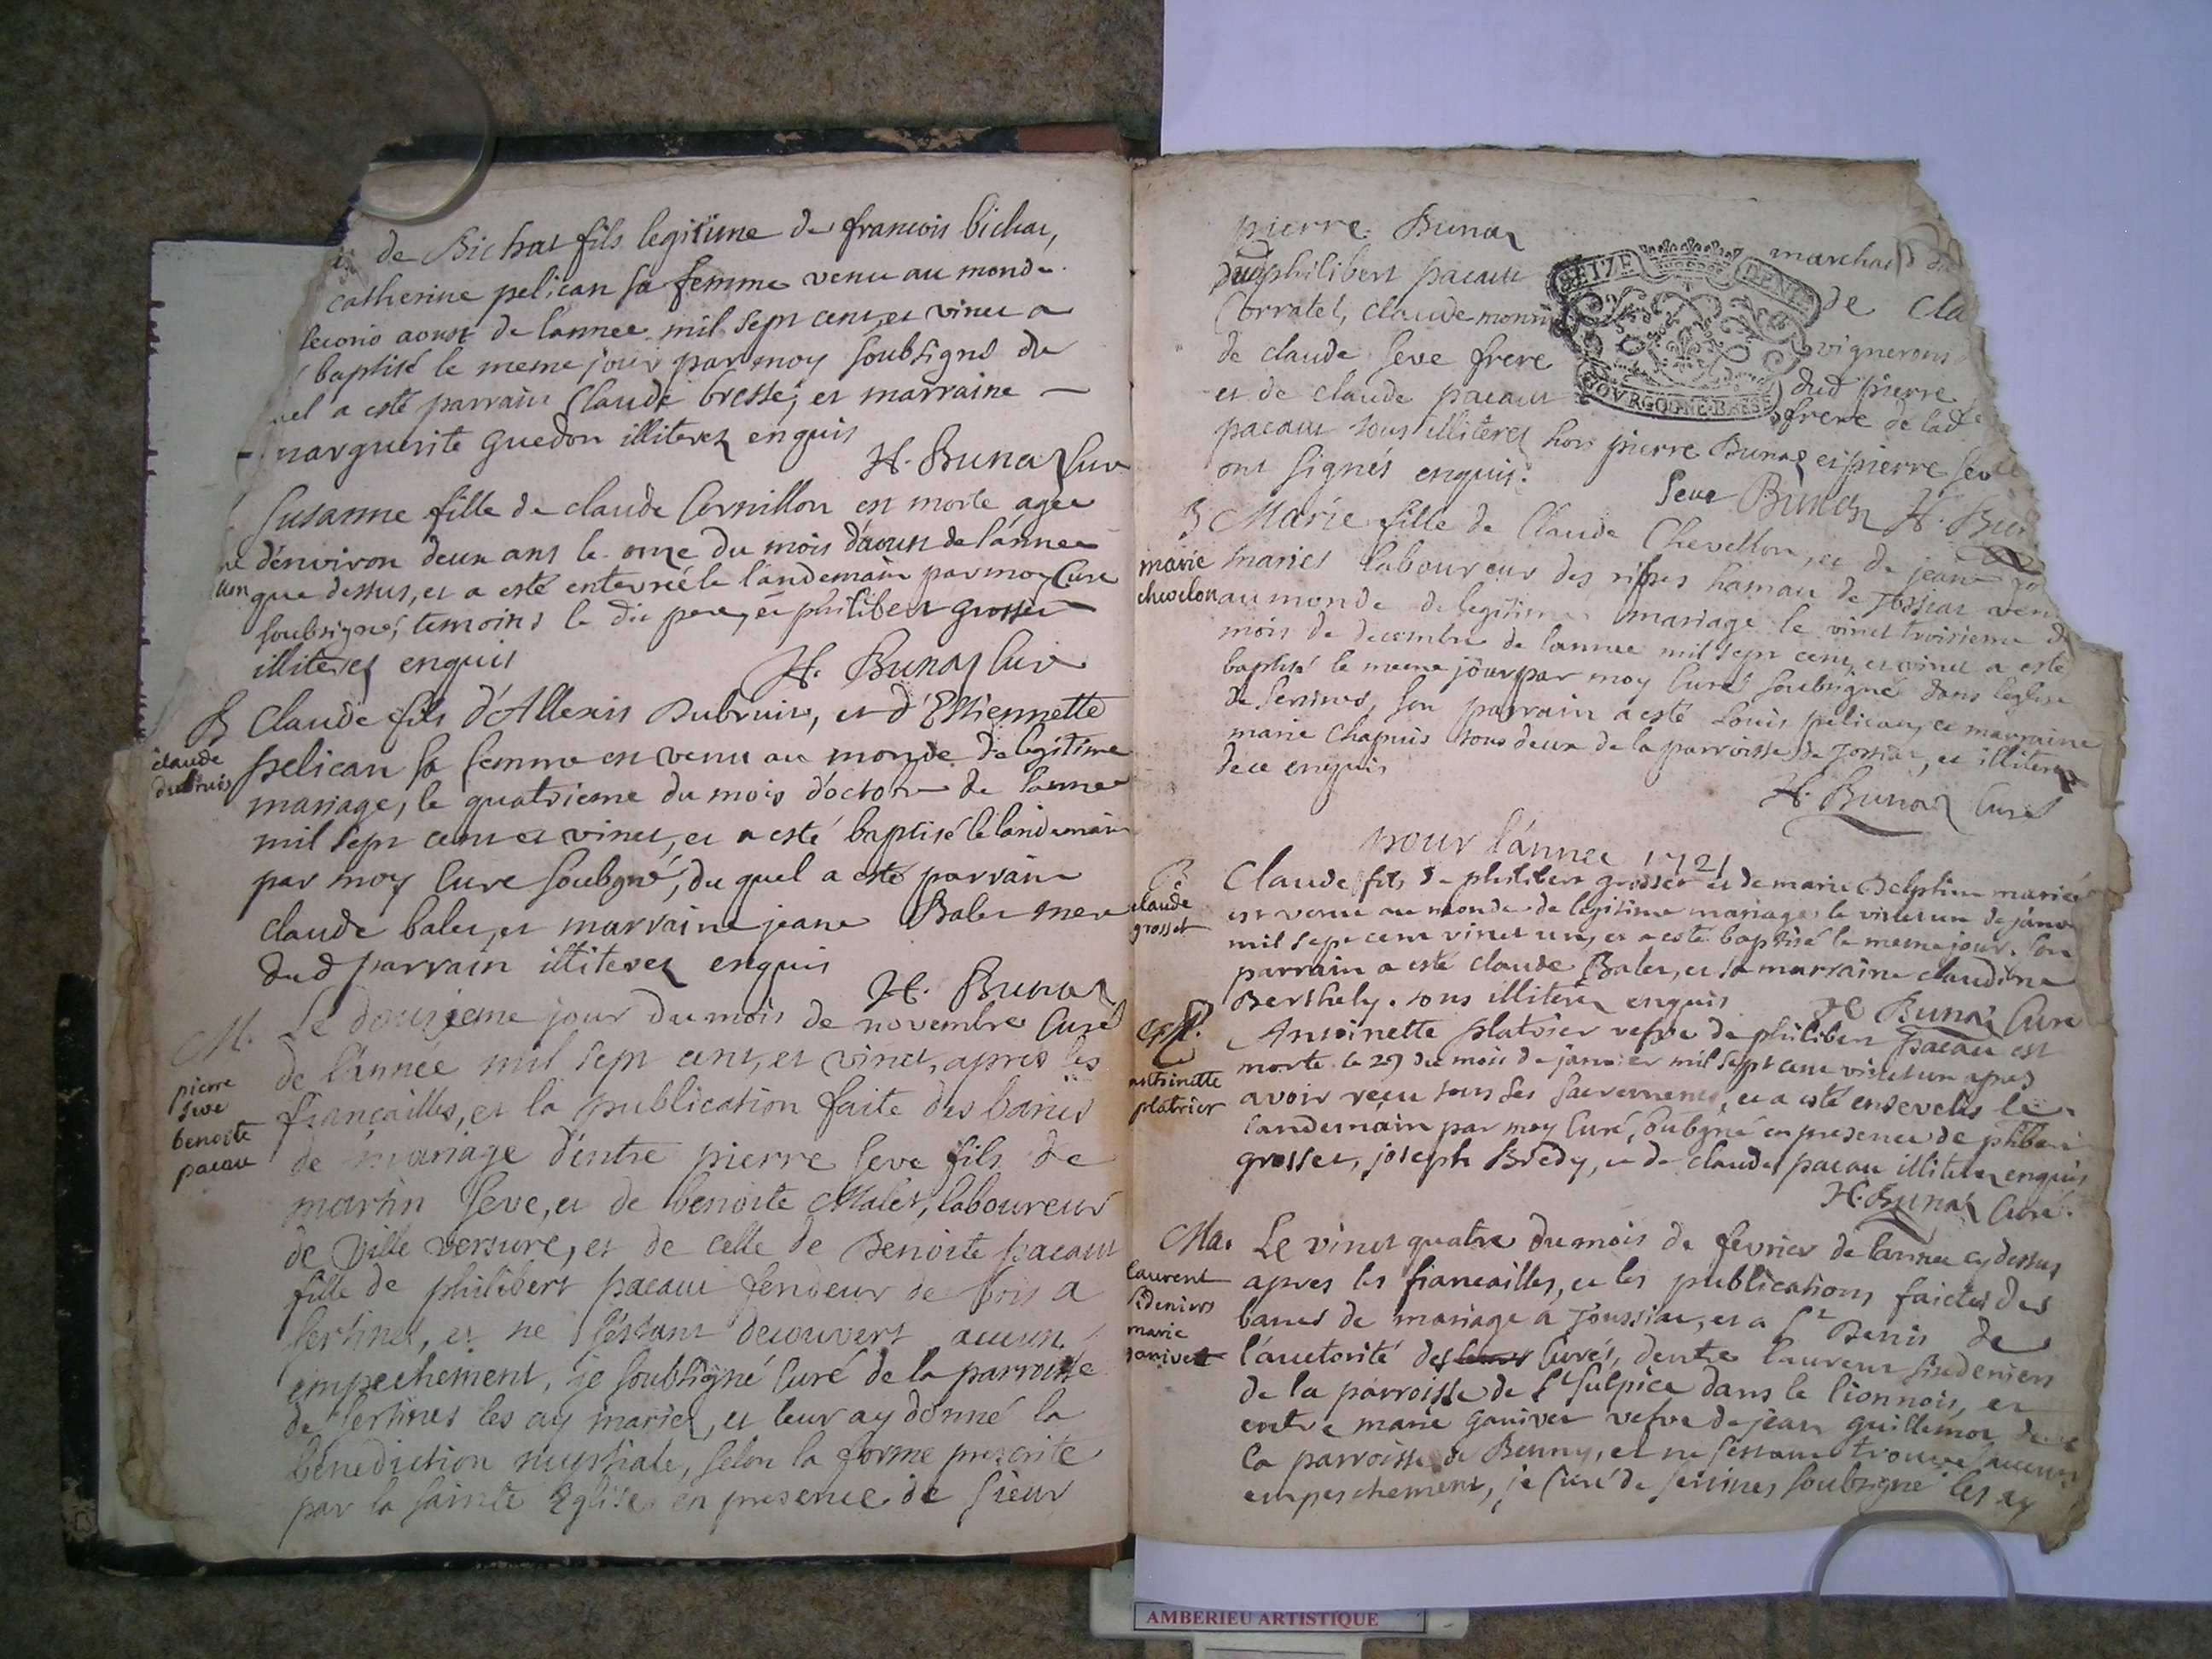 de Bichat fils legitime de francois bichat,
catherine pelican sa femme venu au monde
aoust de l'annee mil sept cent, et vinct a
baptisé le meme jour par moy soubsigné du
uel a esté parrain Claude bresse, et marraine —
marguerite guedon illiterez enquis
H. Bunaz Curé
Susanne fille de claude Cornillon est morte agee
d'environ deux ans le onze du mois d'aoust de l'annee
que dessus, et a esté enterrée le landemain par moy Curé
soubsigné, temoins le dit pere, et philibert grosset
illiterez enquis
H. Bunaz Curé
B
claude
dubruis
Claude fils d'Allexis Dubruis, et d'Estiennette
pelican sa femme est venu au monde de legitime
mariage, le quatrieme du mois d'octobre de l'annee
mil sept cent et vinct, et a esté baptisé le landemain
par moy Curé soubgné, du quel a esté parrain
claude balet, et marraine jeane Balet mere
dud parrain illiterez enquis
H. Bunaz
Curé
M.
pierre
seve
benoite
pacau
Le douzieme jour du mois de novembre
de l'année mil sept cent, et vinct, apres les
fiançailles, et la publication faite des bancs
de mariage d'entre pierre seve fils de
martin seve, et de benoite Malet, laboureur
de Ville versure, et de celle de Benoite pacaut
fille de philibert pacaut fendeur de bois a
sertines, et ne s'estant decouvert aucun
empechement, je soubsigné Curé de la parroisse
de sertines les ay mariez, et leur ay donné la
benediction nuptiale, selon la forme prescrite
par la sainte Eglise en presence de sieur
pierre Bunaz marchand
dud philibert pacaut de Cla
Corratel, claude monni vignerons
de claude seve frere dud pierre
et de claude pacaut frere de lad
SEIZE DENIERS
BOVRGOGNE BRESSE
pacaut tous illiterez hors pierre Bunaz et pierre seve
ont signés enquis.
Seve Bunaz H. Bun
B
marie
chevelon
Marie fille de Claude Chevellon, et de jeane
mariés laboureur des ripes hamau de Jossiat ven
au monde de legitime mariage le vinct troisieme d
mois de decembre de l'annee mil sept cent, et vinct a esté
baptisé le meme jour par moy Curé soubsigné dans l'eglise
de sertines, son parrain a esté Louis pelican, et marraine
marie Chapuis tous deux de la parroisse de Jossiat, et illiterez
de ce enquis
H. Bunaz Curé
pour l'annee 1721
B
claude
grosset
Claude fils de philibert grosset et de marie Delphine mariés
est venu au monde de legitime mariage le vinct un de janv
mil sept cent vinct un, et a esté baptisé le meme jour. Son
parrain a esté claude Balet, et sa marraine claudine
Berthely. tous illiterez enquis
H Bunaz Curé
antoinette
platrier
Antoinette platrier vefve de philibert pacau est
morte le 29 du mois de janvier mil sept cent vinct un apres
avoir reçu tous ses sacrements, et a esté ensevelis le
landemain par moy Curé, soubgné en presence de philibert
grosset, joseph Bredy, et de claude pacau illiterez enquis
H. Bunaz Curé.
Ma.
laurent
sideniers
marie
ganivet
Le vinct quatre du mois de fevrier de l'annee cy dessus
apres les fiancailles, et les publications faictes des
bancs de mariage a Joussiat, et a St Denis de
l'auctorité des Curés, d'entre laurent sideniers
de la parroisse de St Sulpice dans le lionnois, et
entre marie ganivet vefve de jean guillemot de
la parroisse de Benny, et ne s'estant trouvé aucun
empeschement, je Curé de sertines soubsigné les ay
AMBERIEU ARTISTIQUE